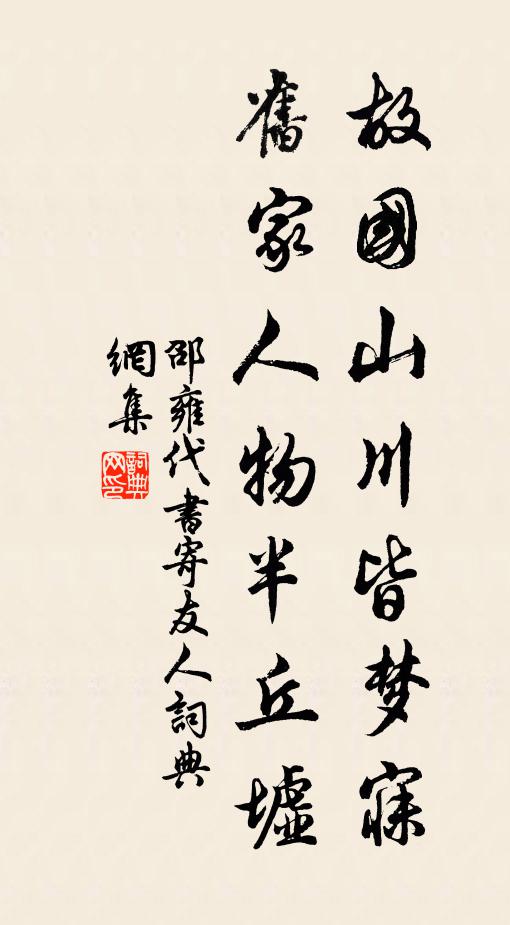 故國山川皆梦寐
舊家人物半丘墟
邵雍代書寄友人詞典
網集
詞典网印